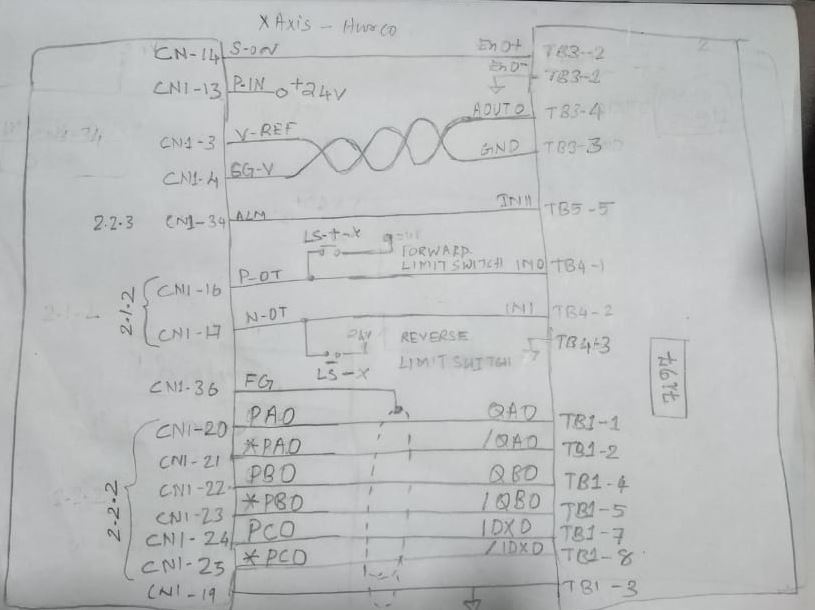 X Axis - Hurco
CN-14 S-ON EnO+ TB3-2
EnO-
CN1-13 P-IN O+24V TB3-1
AOUTO TB3-4
CN1-3 V-REF
GND TB3-3
CN1-4 SG-V
2.2.3 CN1-34 ALM IN11 TB5-5
LS-+-X
FORWARD
LIMIT SWITCH
CN1-16 P-OT INO TB4-1
2.1.2
CN1-17 N-OT IN1 TB4-2
24V REVERSE TB4-3
LIMIT SWITCH
LS-X
7197
CN1-36 FG
CN1-20 PAO QAO TB1-1
CN1-21 *PAO /QAO TB1-2
CN1-22 PBO QBO TB1-4
2.2.2
CN1-23 *PBO /QBO TB1-5
CN1-24 PCO IDXO TB1-7
CN1-25 *PCO /IDXO TB1-8
CN1-19 TB1-3